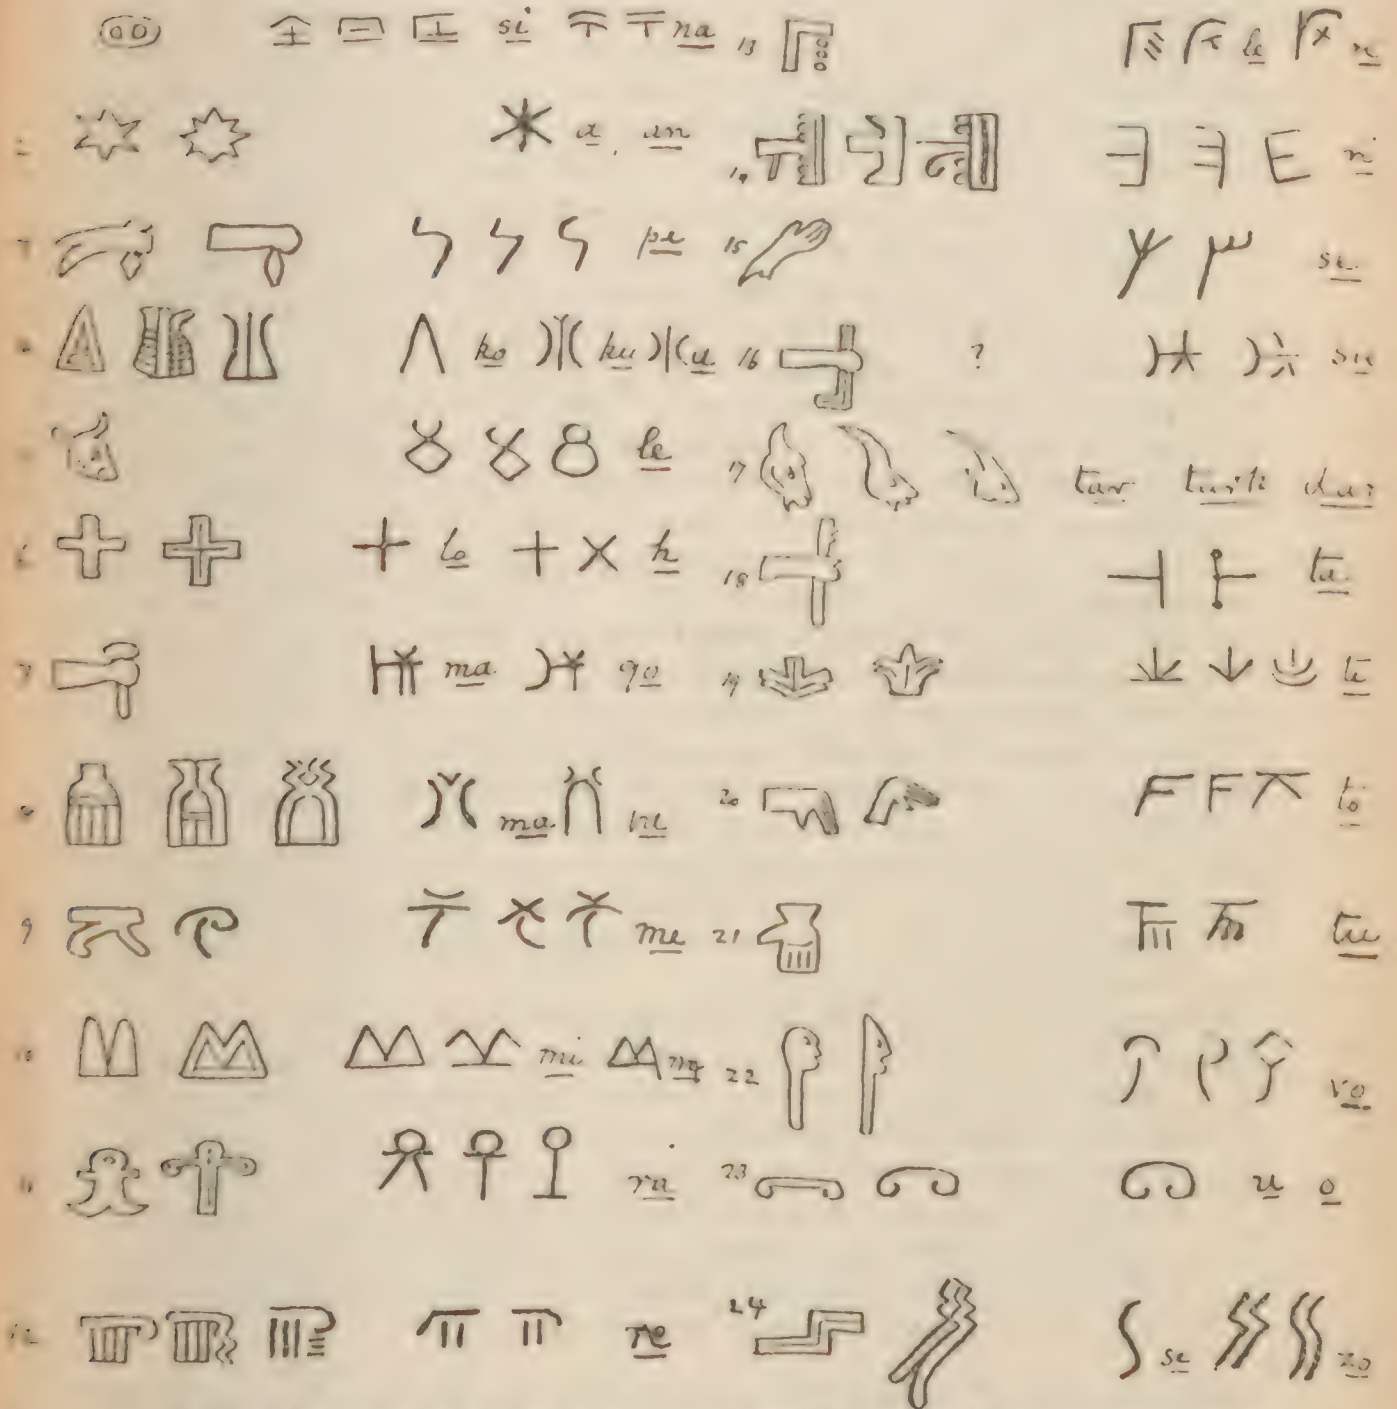 si na 13 le
2 a. an 14 ni
3 pe 15 se
4 ko ku u 16 ? su
5 le 17 tar tarku dar
6 lo h 18 ta
7 ma go 19 te
8 ma ne 20 to
9 me 21 tu
10 mi 22 vo
11 ra 23 u o
12 re 24 se xo